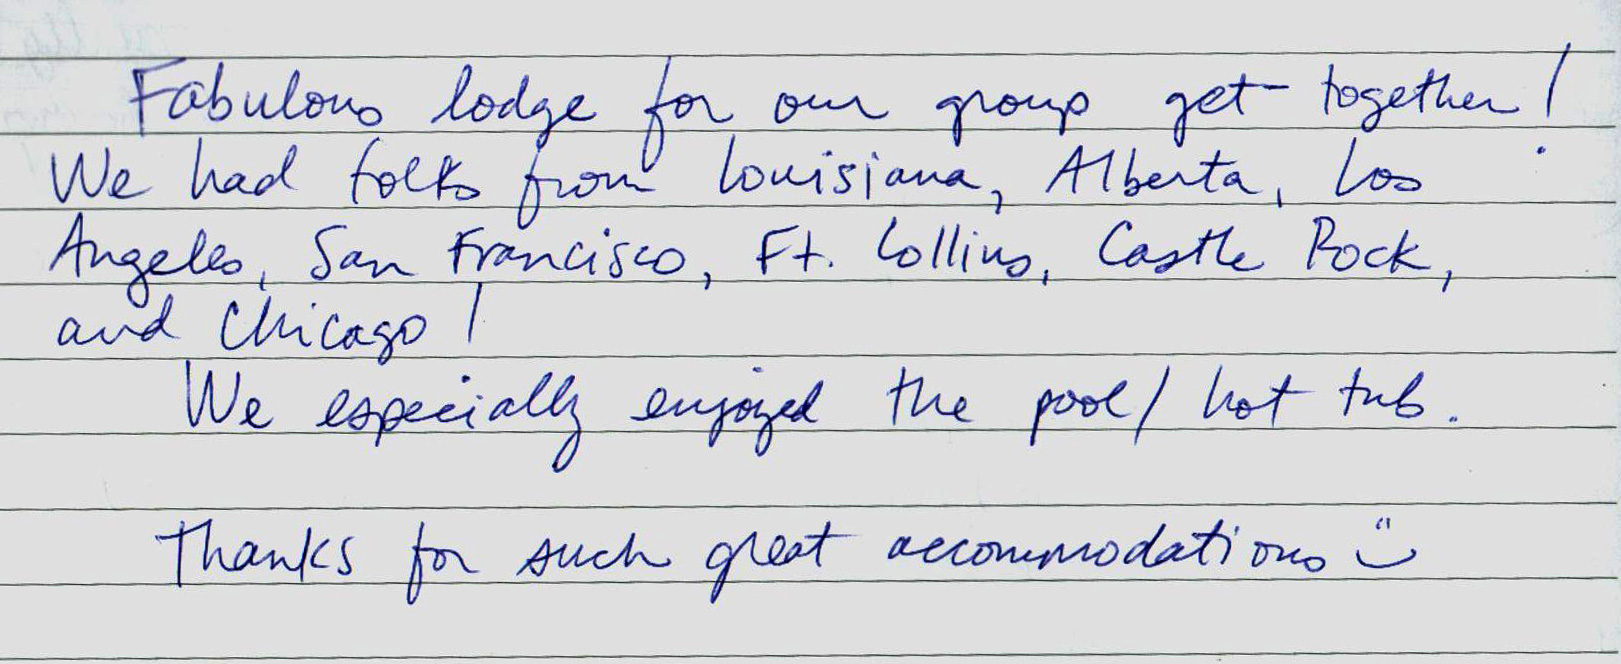 Fabulous lodge for our group get-together!
We had folks from Louisiana, Alberta, Los
Angeles, San Francisco, Ft. Collins, Castle Rock,
and Chicago!
We especially enjoyed the pool/hot tub.
Thanks for such great accommodations